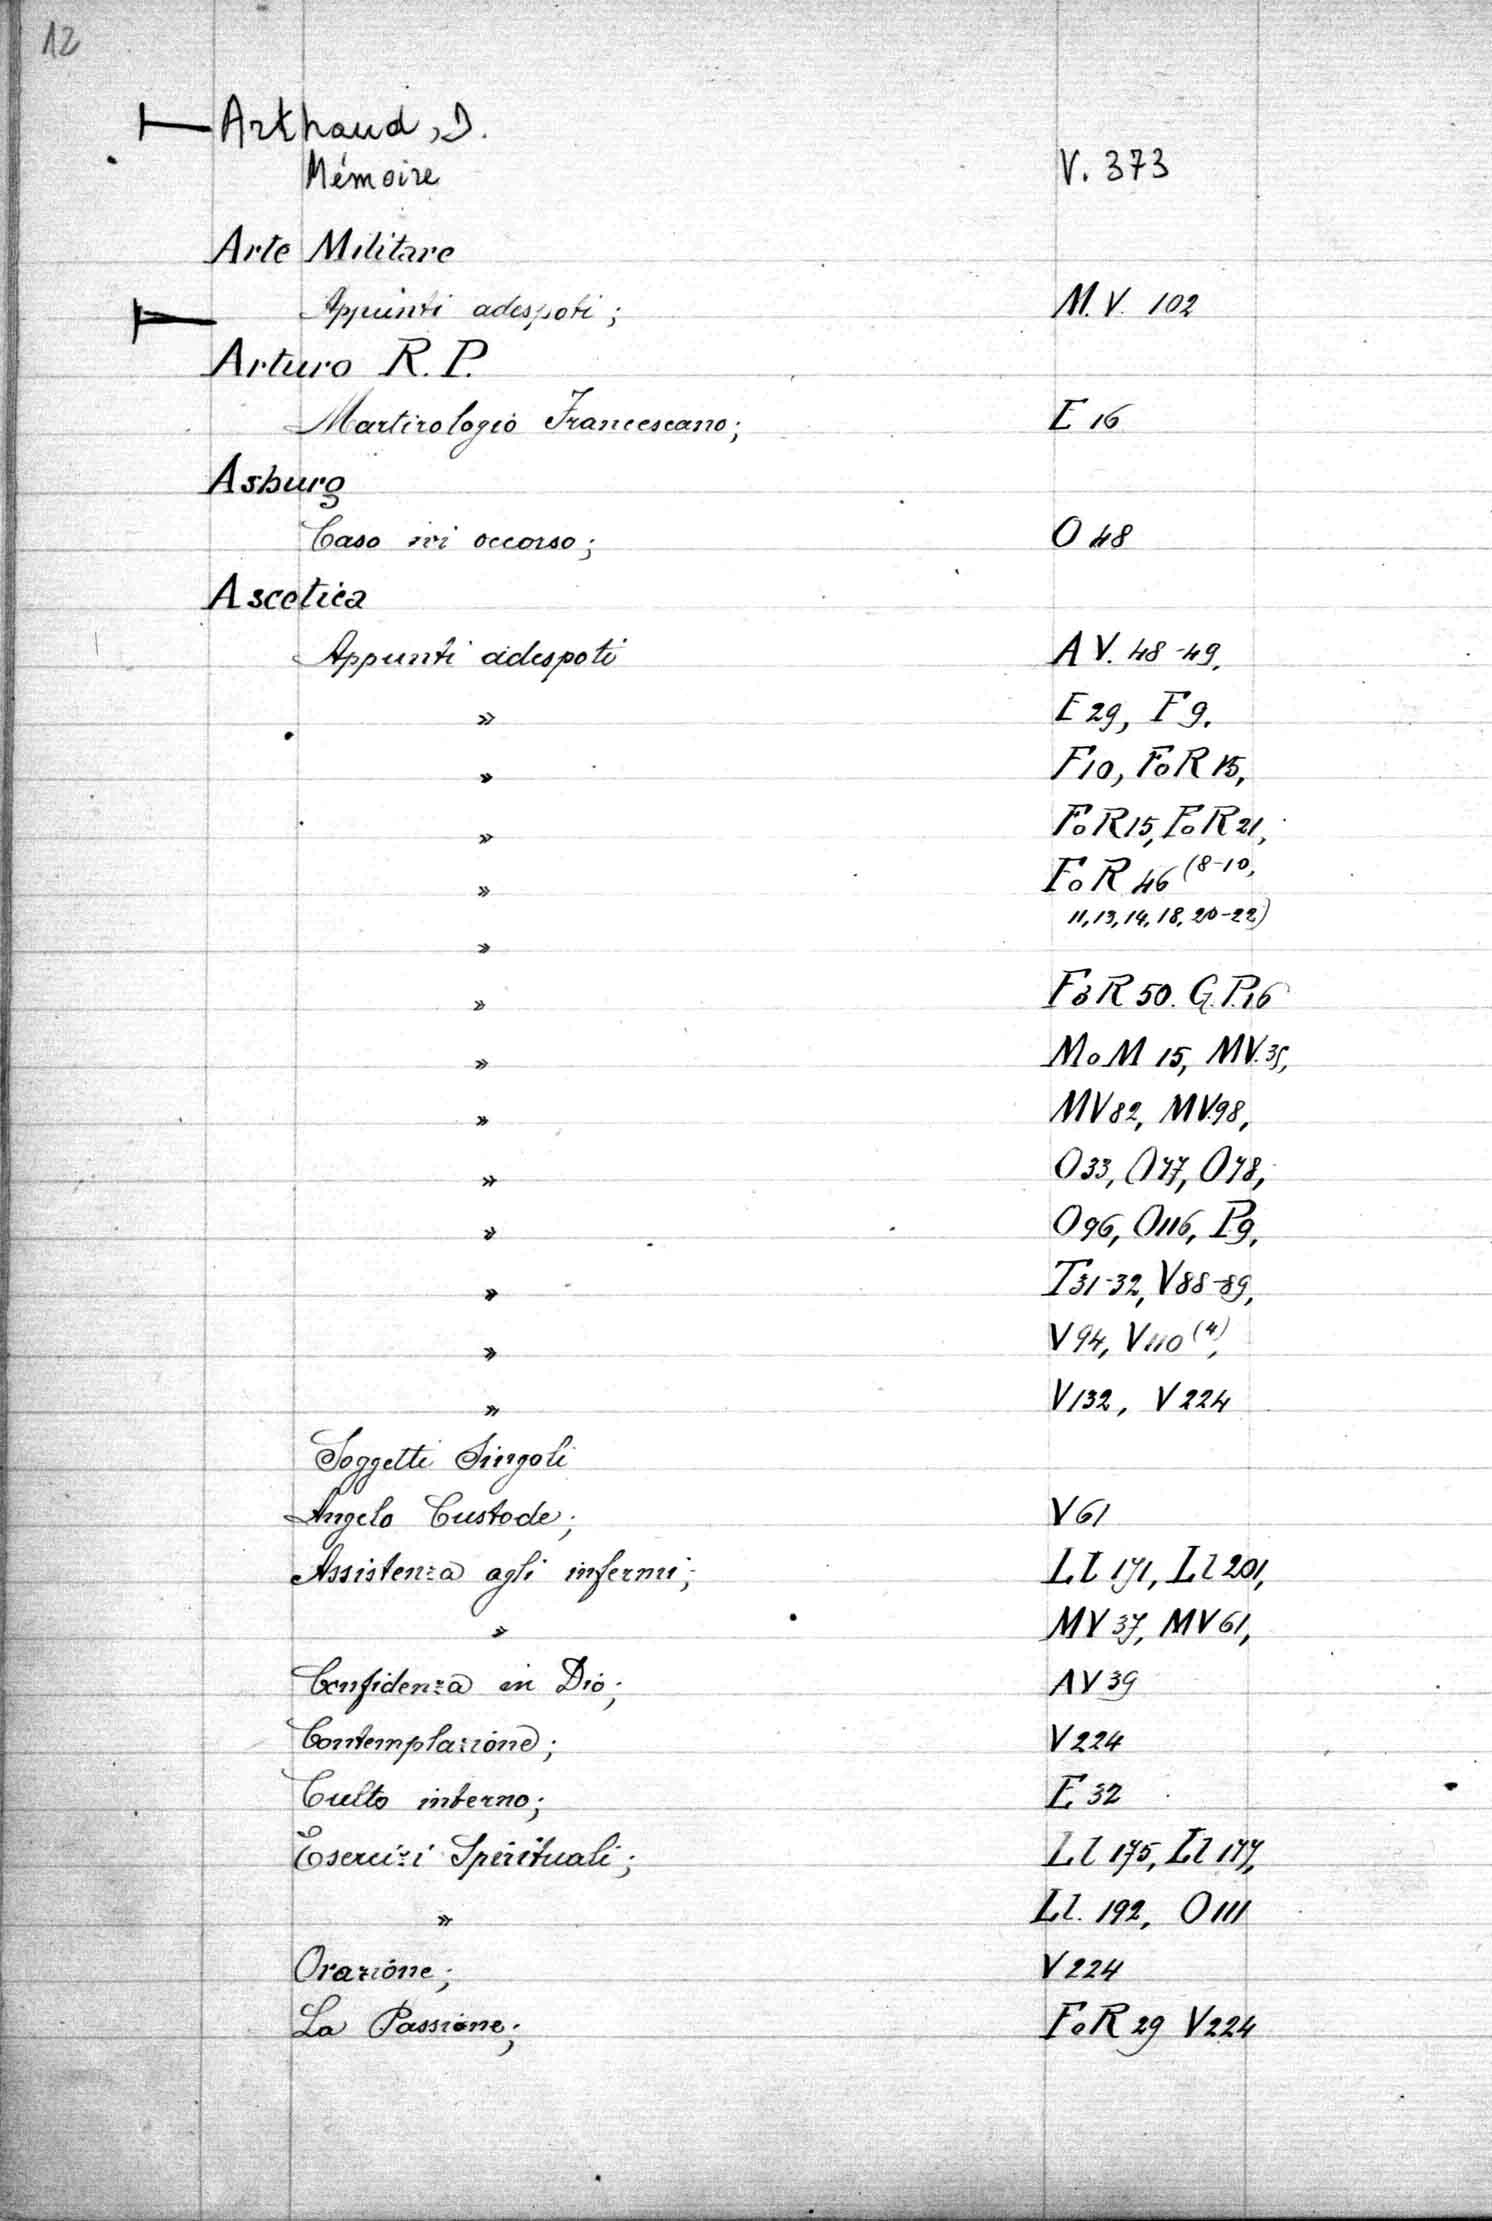 12
Arthaud, D.
Mémoire V. 373
Arte Militare
Appunti adespoti; M.V. 102
Arturo R. P.
Martirologio Francescano; E 16
Asburg
Caso ivi occorso; O 48
Ascetica
Appunti adespoti A V. 48-49,
» E 29, F 9.
» F10, FoR 15,
» FoR15, FoR 21,
» FoR 46 (8-10,
11, 13, 14, 18, 20-22)
»
» FoR 50. G. P. 16
» MoM 15, MV. 35,
» MV 82, MV.98,
» O33, O77, O78,
» O96, O116, P9,
» T31-32, V88-89,
» V94, V110 (4),
» V132, V 224
Soggetti Singoli
Angelo Custode; V 61
Assistenza agli infermi; Ll 171, Ll 201,
» MV 37, MV 61,
Confidenza in Dio; AV 39
Contemplazione; V 224
Culto interno; E 32
Esercizi Spirituali; Ll 175, Ll 177,
» Ll. 192, O 111
Orazione; V 224
La Passione; FoR 29 V224